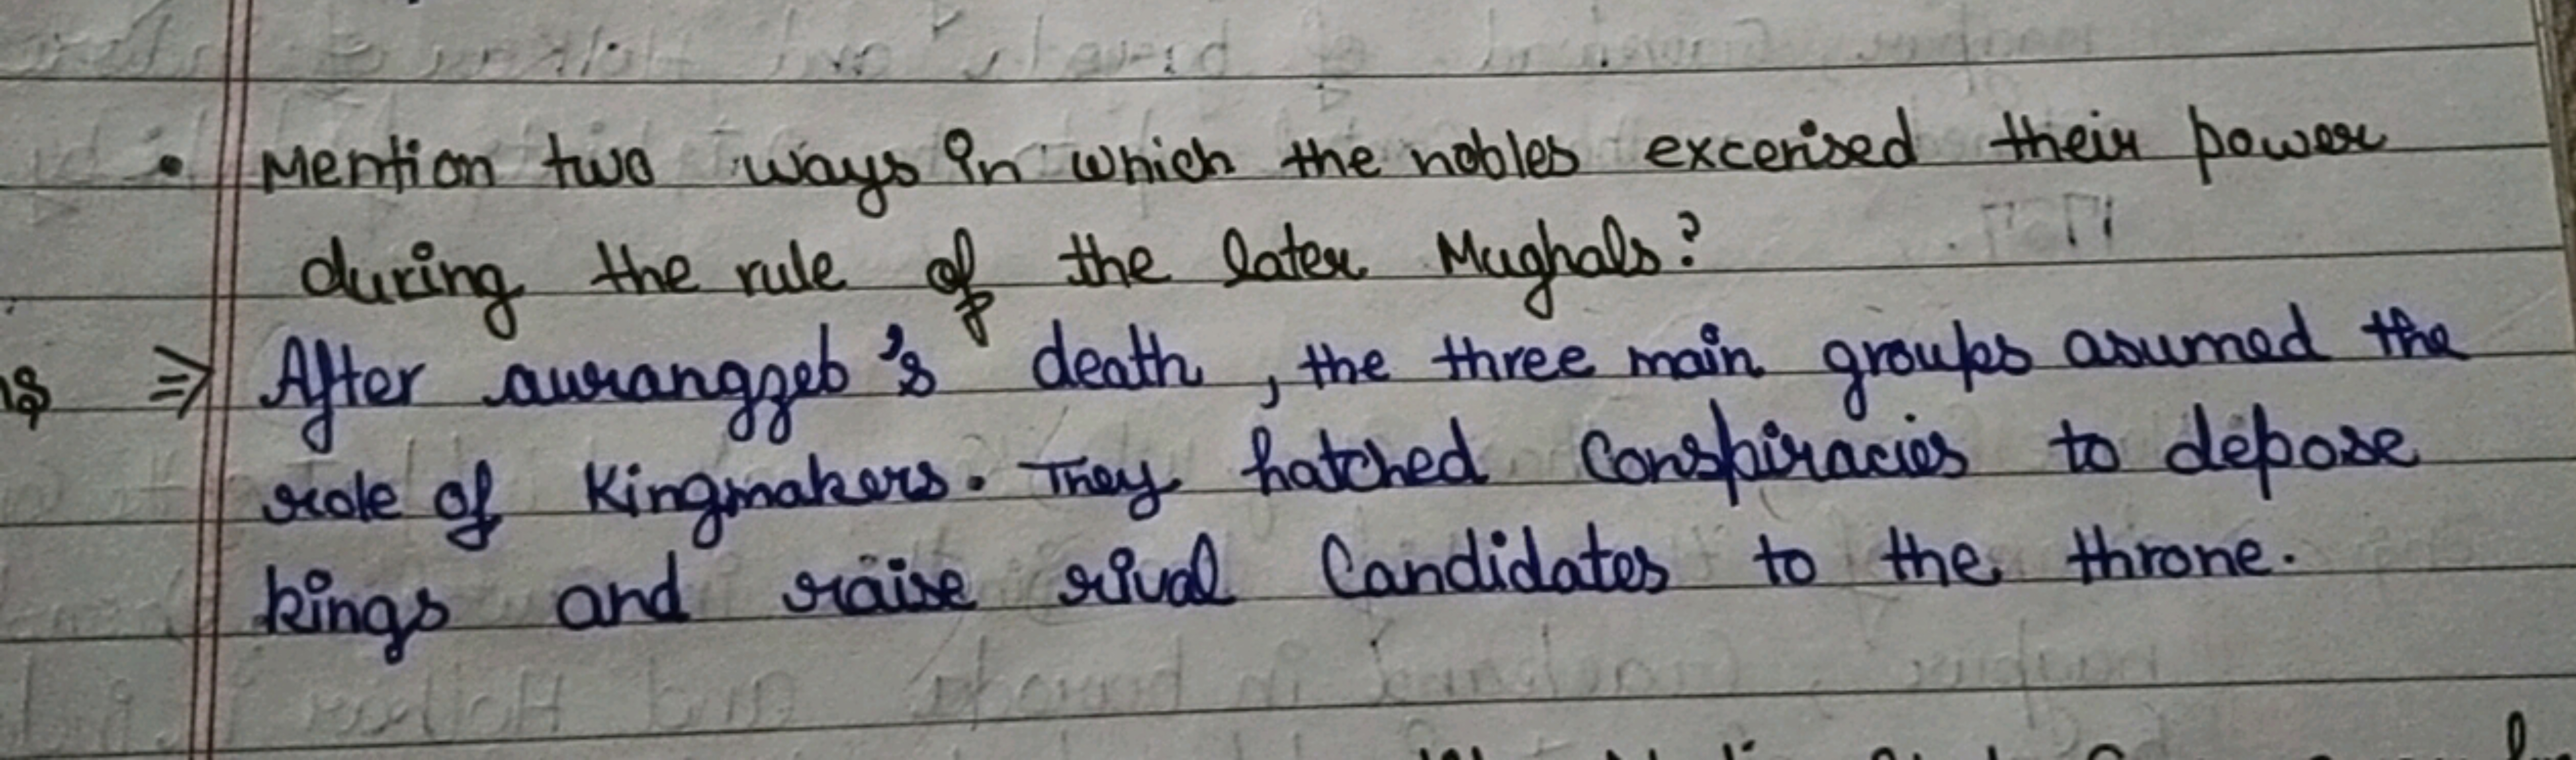 • Mention two ways in which the nobles excerised their power
during the rule of the later Mughals?
⇒ After aurangzeb's death, the three main groups asumed the
role of Kingmakers. They hatched Conspiracies to depose
kings and raise rival Candidates to the throne.